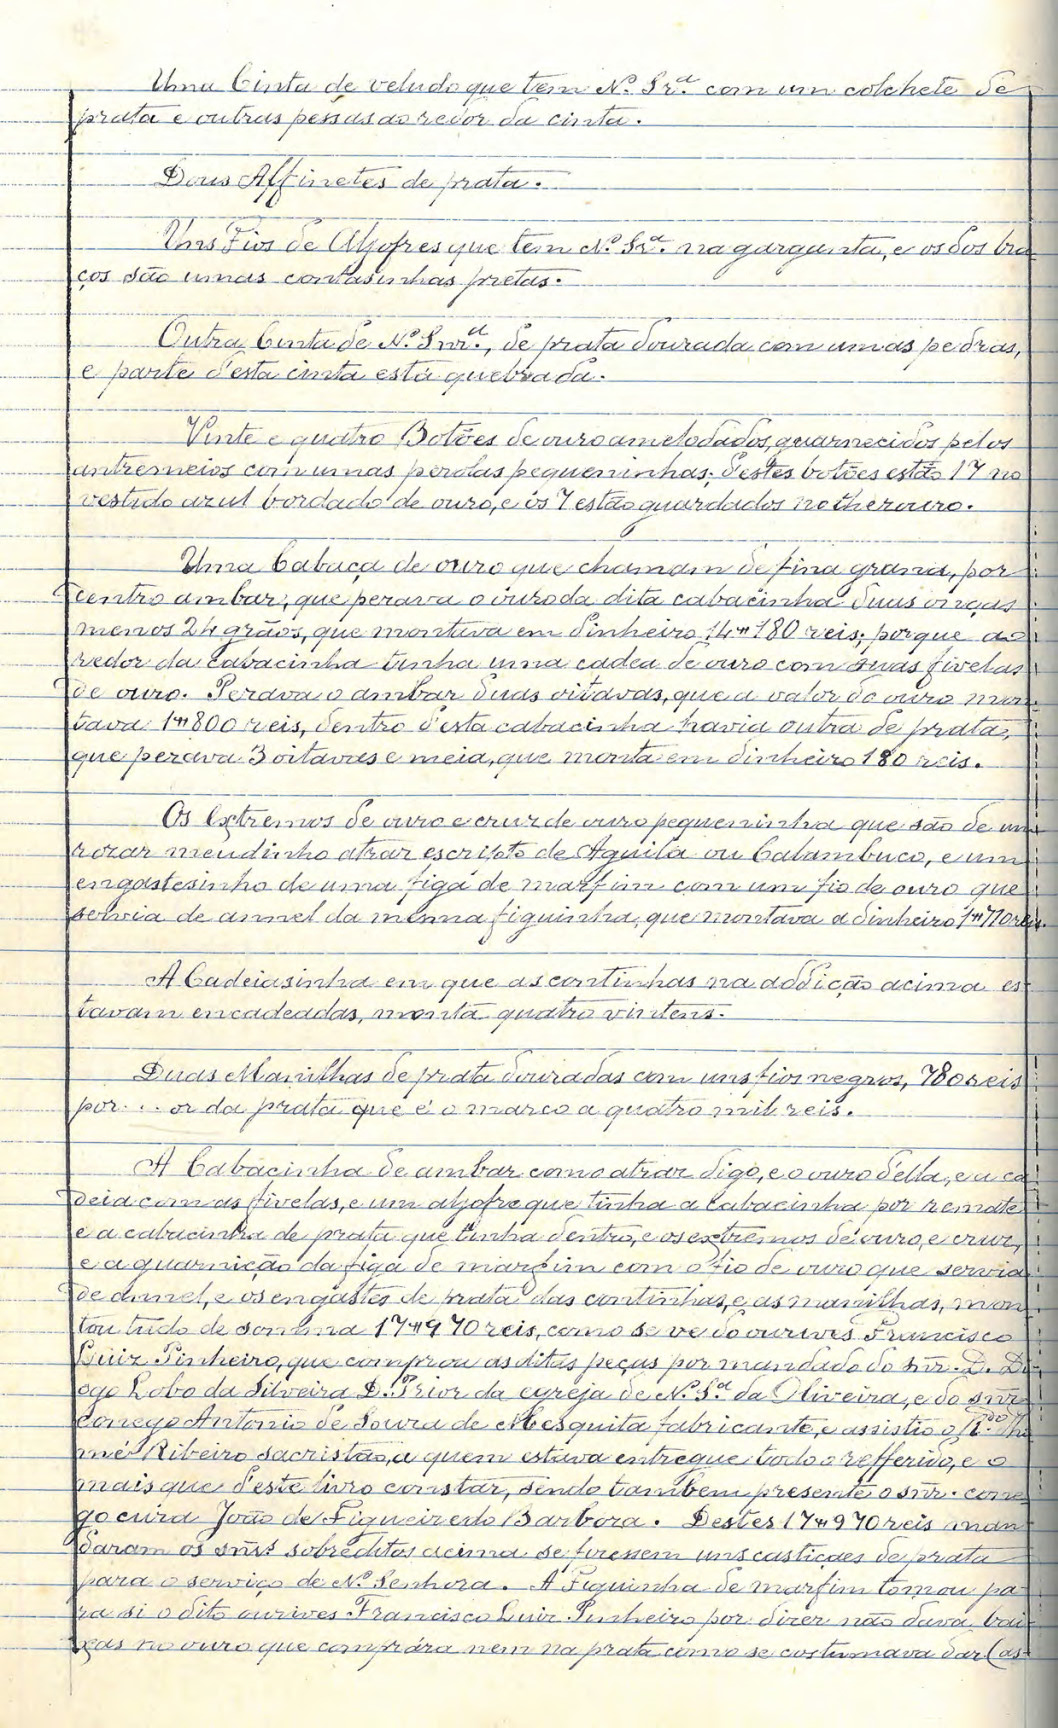 Uma Cinta de veludo que tem N.ª Sr.ª com um colchete de
prata e outras pessas ao redor da cinta.
Dous Affinetes de prata.
Uns Fios de Aljofres que tem N.ª Sr.ª na garganta, e os dos bra
ços são umas contasinhas pretas.
Outra Cinta de N.ª Snr.ª, de prata dourada com umas pedras,
e parte d'esta cinta está quebrada.
Vinte e quatro Botões de ouro amelodados, guarnecidos pelos
antremeios com umas perolas pequeninhas; d'estes botões estão 17 no
vestido azul bordado de ouro, e os 7 estão guardados no thezouro.
Uma Cabaça de ouro que chamam de fina grana, por
dentro ambar, que pezava o ouro da dita cabacinha duas onças
menos 24 grãos, que montava em dinheiro 14#180 reis; porque ao
redor da cabacinha tinha uma cadea de ouro com suas fivelas
de ouro. Pezava o ambar duas oitavas, que a valor do ouro mon
tava 1#800 reis, dentro d'esta cabacinha havia outra de prata,
que pezava 3 oitavas e meia, que monta em dinheiro 180 reis.
Os Extremos de ouro e cruz de ouro pequeninha que são de um
rozar meudinho atraz escripto de Aguila ou Calambuco, e um
engastesinho de uma figa de marfim com um fio de ouro que
servia de annel da mesma figuinha, que montava a dinheiro 1#710 reis.
A Cadeiasinha em que as continhas na addição acima es
tavam encadeadas, monta quatro vintens.
Duas Manilhas de prata douradas com uns fios negros, 780 reis
por ... or da prata que é o marco a quatro mil reis.
A Cabacinha de ambar como atraz digo, e o ouro d'ella, e a ca
deia com as fivelas, e um aljofre que tinha a cabacinha por remate
e a cabacinha de prata que tinha dentro, e os extremos de ouro, e cruz,
e a guarnição da figa de marfim com o fio de ouro que servia
de annel, e os engastes de prata das continhas, e as manilhas, mon
tou tudo de somma 17#970 reis, como se vê do ourives Francisco
Luiz Pinheiro, que comprou as ditas peças por mandado do snr. D. Di
ogo Lobo da Silveira D. Prior da egreja de N.ª S.ª da Oliveira, e do snr.
Conego Antonio de Souza de Mesquita fabricante, e assistio o R.do Tho
mé Ribeiro sacristão, a quem estava entregue todo o refferido, e o
mais que d'este livro constar, sendo tambem presente o snr. cone
go cura João de Figueiredo Barboza. Destes 17#970 reis man
daram os snrs sobreditos acima se fizessem uns castiçaes de prata
para o serviço de N.ª Senhora. A Figuinha de marfim tomou pa
ra si o dito ourives Francisco Luiz Pinheiro por dizer não dava bai
xas no ouro que comprára nem na prata como se costumava dar (as